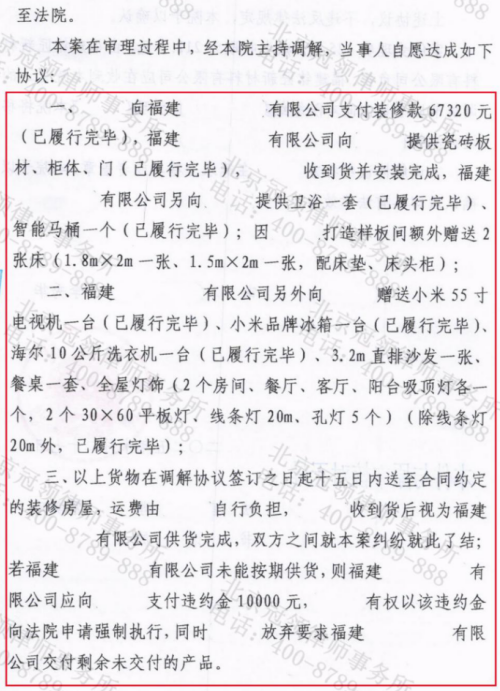 至法院。
本案在审理过程中，经本院主持调解，当事人自愿达成如下
协议：
一、 向福建 有限公司支付装修款 67320 元
（已履行完毕），福建 有限公司向 提供瓷砖板
材、柜体、门（已履行完毕）， 收到货并安装完成，福建
有限公司另向 提供卫浴一套（已履行完毕）、
智能马桶一个（已履行完毕）；因 打造样板间额外赠送 2
张床（1.8m×2m 一张、1.5m×2m 一张，配床垫、床头柜）；
二、福建 有限公司另外向 赠送小米 55 寸
电视机一台（已履行完毕）、小米品牌冰箱一台（已履行完毕）、
海尔 10 公斤洗衣机一台（已履行完毕）、3.2m 直排沙发一张、
餐桌一套、全屋灯饰（2 个房间、餐厅、客厅、阳台吸顶灯各一
个，2 个 30×60 平板灯、线条灯 20m、孔灯 5 个）（除线条灯
20m 外，已履行完毕）；
三、以上货物在调解协议签订之日起十五日内送至合同约定
的装修房屋，运费由 自行负担， 收到货后视为福建
有限公司供货完成，双方之间就本案纠纷就此了结；
若福建 有限公司未能按期供货，则福建 有
限公司应向 支付违约金 10000 元， 有权以该违约金
向法院申请强制执行，同时 放弃要求福建 有限
公司交付剩余未交付的产品。
北京冠领律师事务所
电话：400-8789-888